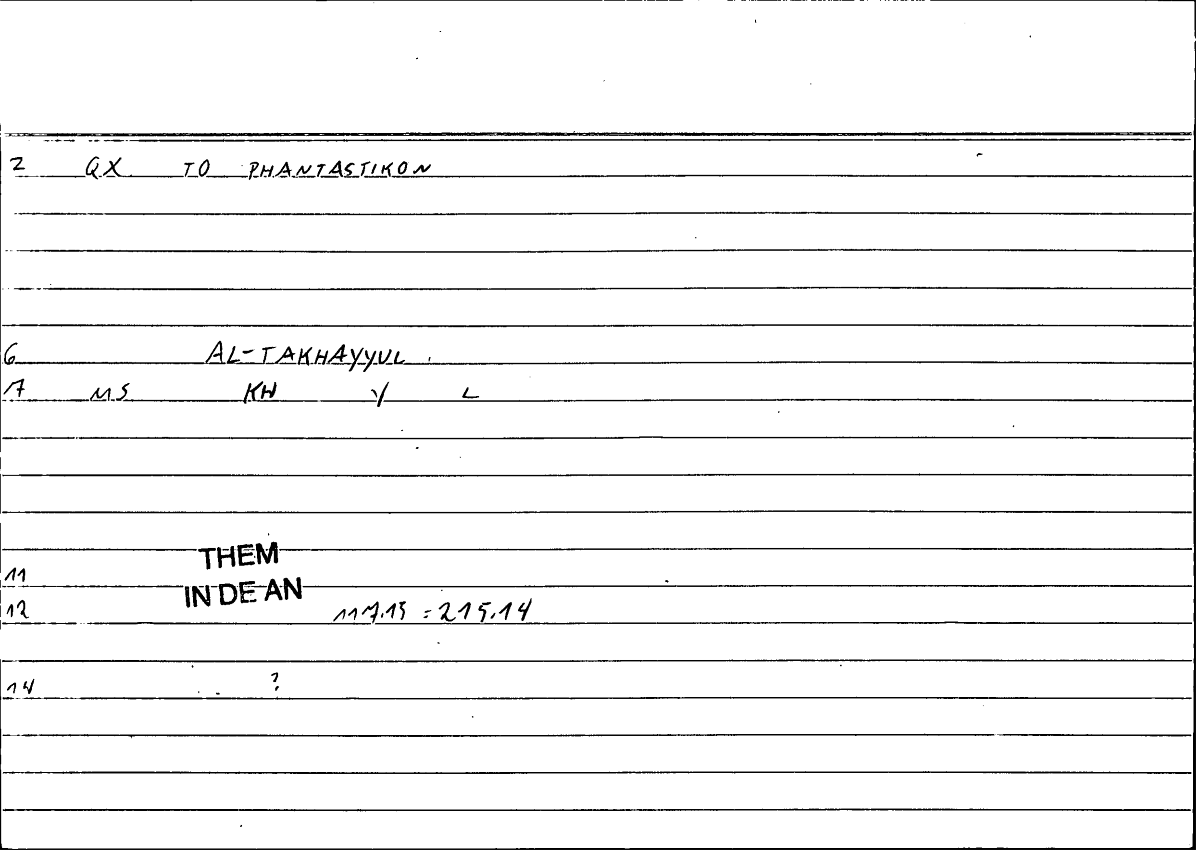 2 QX TO PHANTASTIKON
6 AL-TAKHAYYUL
7 MS KH Y L
THEM
11
IN DE AN
12 117.15 = 215.14
14 ?